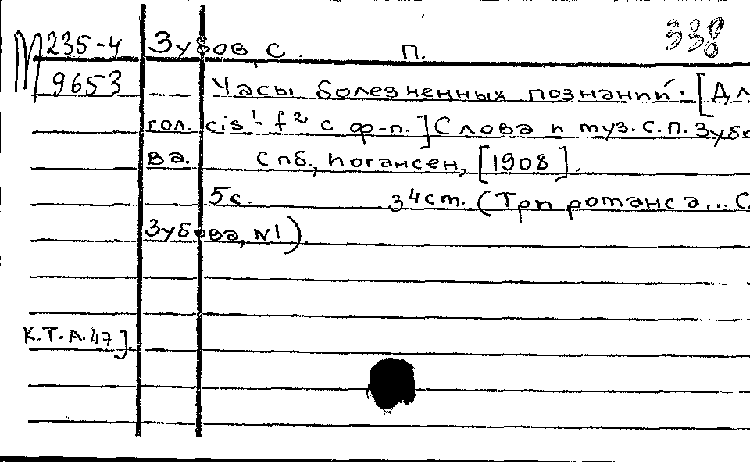 338
М 235-4 Зубов, С. П.
9653 Часы болезненных познаний. [Дл
гол. cis¹- f² с ф-п.] Слова и муз. С. П. Зубо
ва. Спб., Иогансен, [1908].
5 с. 34 ст. (Три романса... С.
Зубова, №1)
К.Т.А.47]